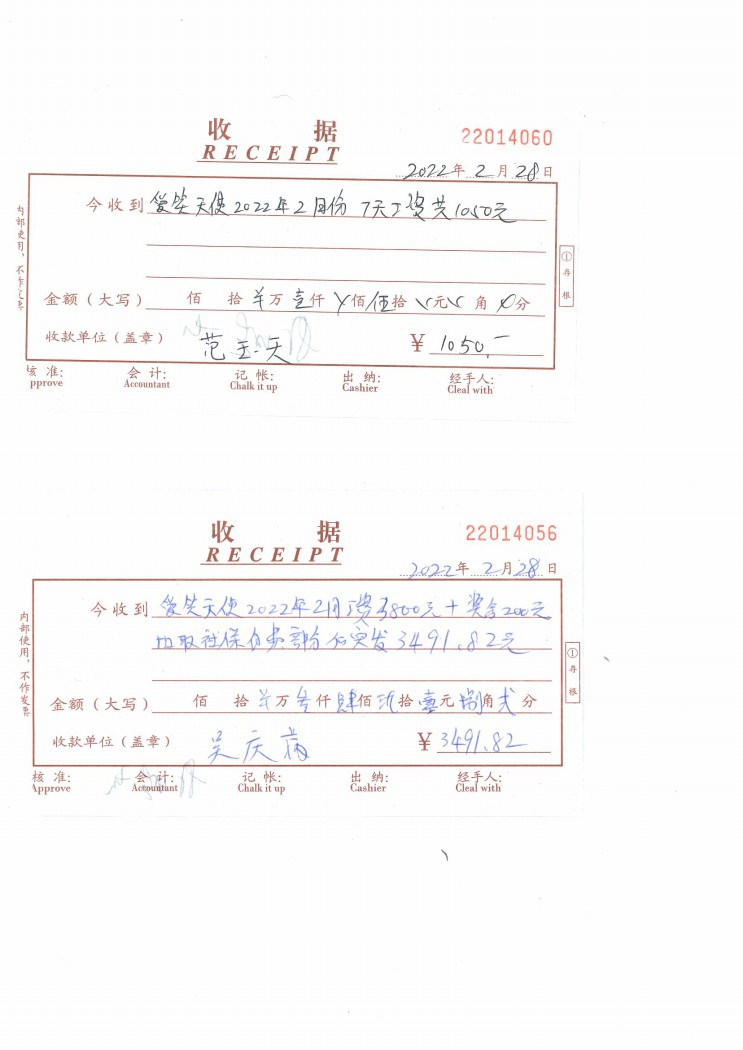 收 据
RECEIPT
22014060
2022年 2 月 28 日
今收到 爱笑天使2022年2月份 7天工资共1050元
金额（大写） 佰 拾 羊万 壹仟 佰 伍拾 元 角 分
收款单位（盖章） 范 天
¥ 1050.-
核 准: 会 计: 记 帐: 出 纳: 经手人:
pprove Accountant Chalk it up Cashier Cleal with
内部使用，不作发票
①存根
收 据
RECEIPT
22014056
2022年 2月28日
今收到 爱笑天使2022年2月工资3800元+奖金200元
扣取社保自费部份后实发3491.82元
金额（大写） 佰 拾 羊万 叁仟肆佰玖拾壹元捌角贰分
收款单位（盖章） 吴庆
¥ 3491.82
核 准: 会 计: 记 帐: 出 纳: 经手人:
Approve Accountant Chalk it up Cashier Cleal with
内部使用，不作发票
①存根